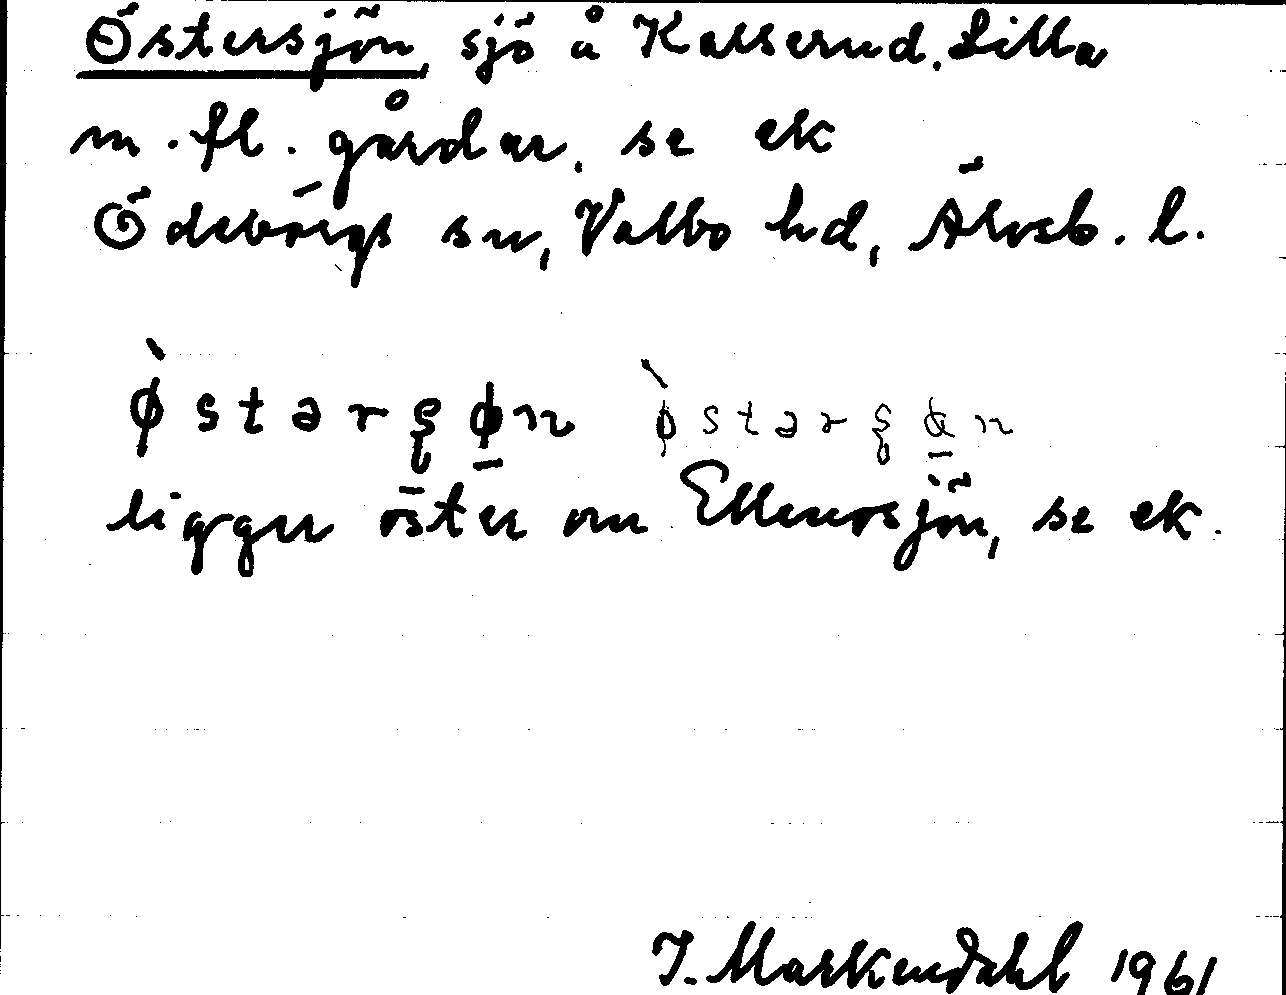 Östersjön, sjö å Kasserud, Lilla
m. fl. gårdar, se ek
Ödeborgs sn, Valbo hd, Älvsb. l.
`østərʂøn `østərʂøn
ligger öster om Ellenösjön, se ek.
J. Markendahl 1961